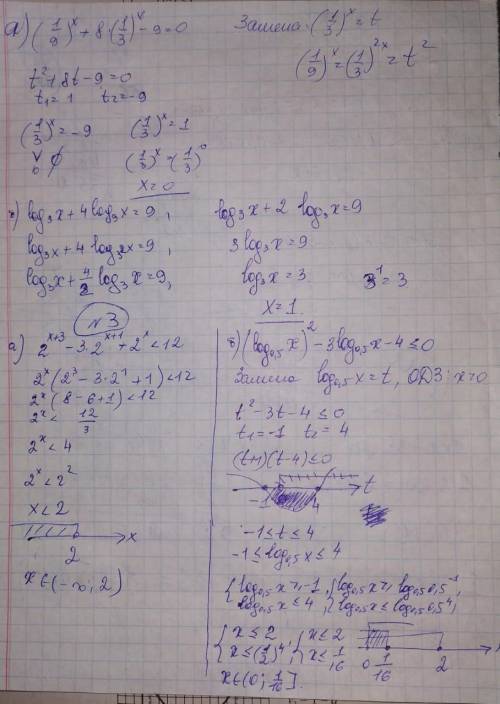 д) (1/9)^x + 8·(1/3)^x - 9 = 0
Замена: (1/3)^x = t
(1/9)^x = (1/3)^2x = t^2
t^2 + 8t - 9 = 0
t₁ = 1 t₂ = -9
(1/3)^x = -9 (1/3)^x = 1
∅ (1/3)^x = (1/3)^0
x = 0
log₃x + 4 log₉x = 9,
log₃x + 4 log₃²x = 9,
log₃x + 4/2 log₃x = 9,
log₃x + 2 log₃x = 9
3 log₃x = 9
log₃x = 3. 3^1 = 3
x = 1.
№3
а) 2^x+3 - 3·2^x+1 + 2^x < 12
2^x(2^3 - 3·2^1 + 1) < 12
2^x(8 - 6 + 1) < 12
2^x < 12/3
2^x < 4
2^x < 2^2
x < 2
2 x
x ∈ (-∞; 2)
б) (log₀,₅x)^2 - 3log₀,₅x - 4 ≤ 0
Замена log₀,₅x = t, ОДЗ: x > 0
t^2 - 3t - 4 ≤ 0
t₁ = -1 t₂ = 4
(t+1)(t-4) ≤ 0
-1 4 t
-1 ≤ t ≤ 4
-1 ≤ log₀,₅x ≤ 4
{log₀,₅x ≥ -1, {log₀,₅x ≥ log₀,₅0,5^-1,
log₀,₅x ≤ 4; log₀,₅x ≤ log₀,₅0,5^4;
{x ≤ 2 {x ≤ 2
x ≤ (1/2)^4; x ≤ 1/16
0 1/16 2
x ∈ (0; 1/16].